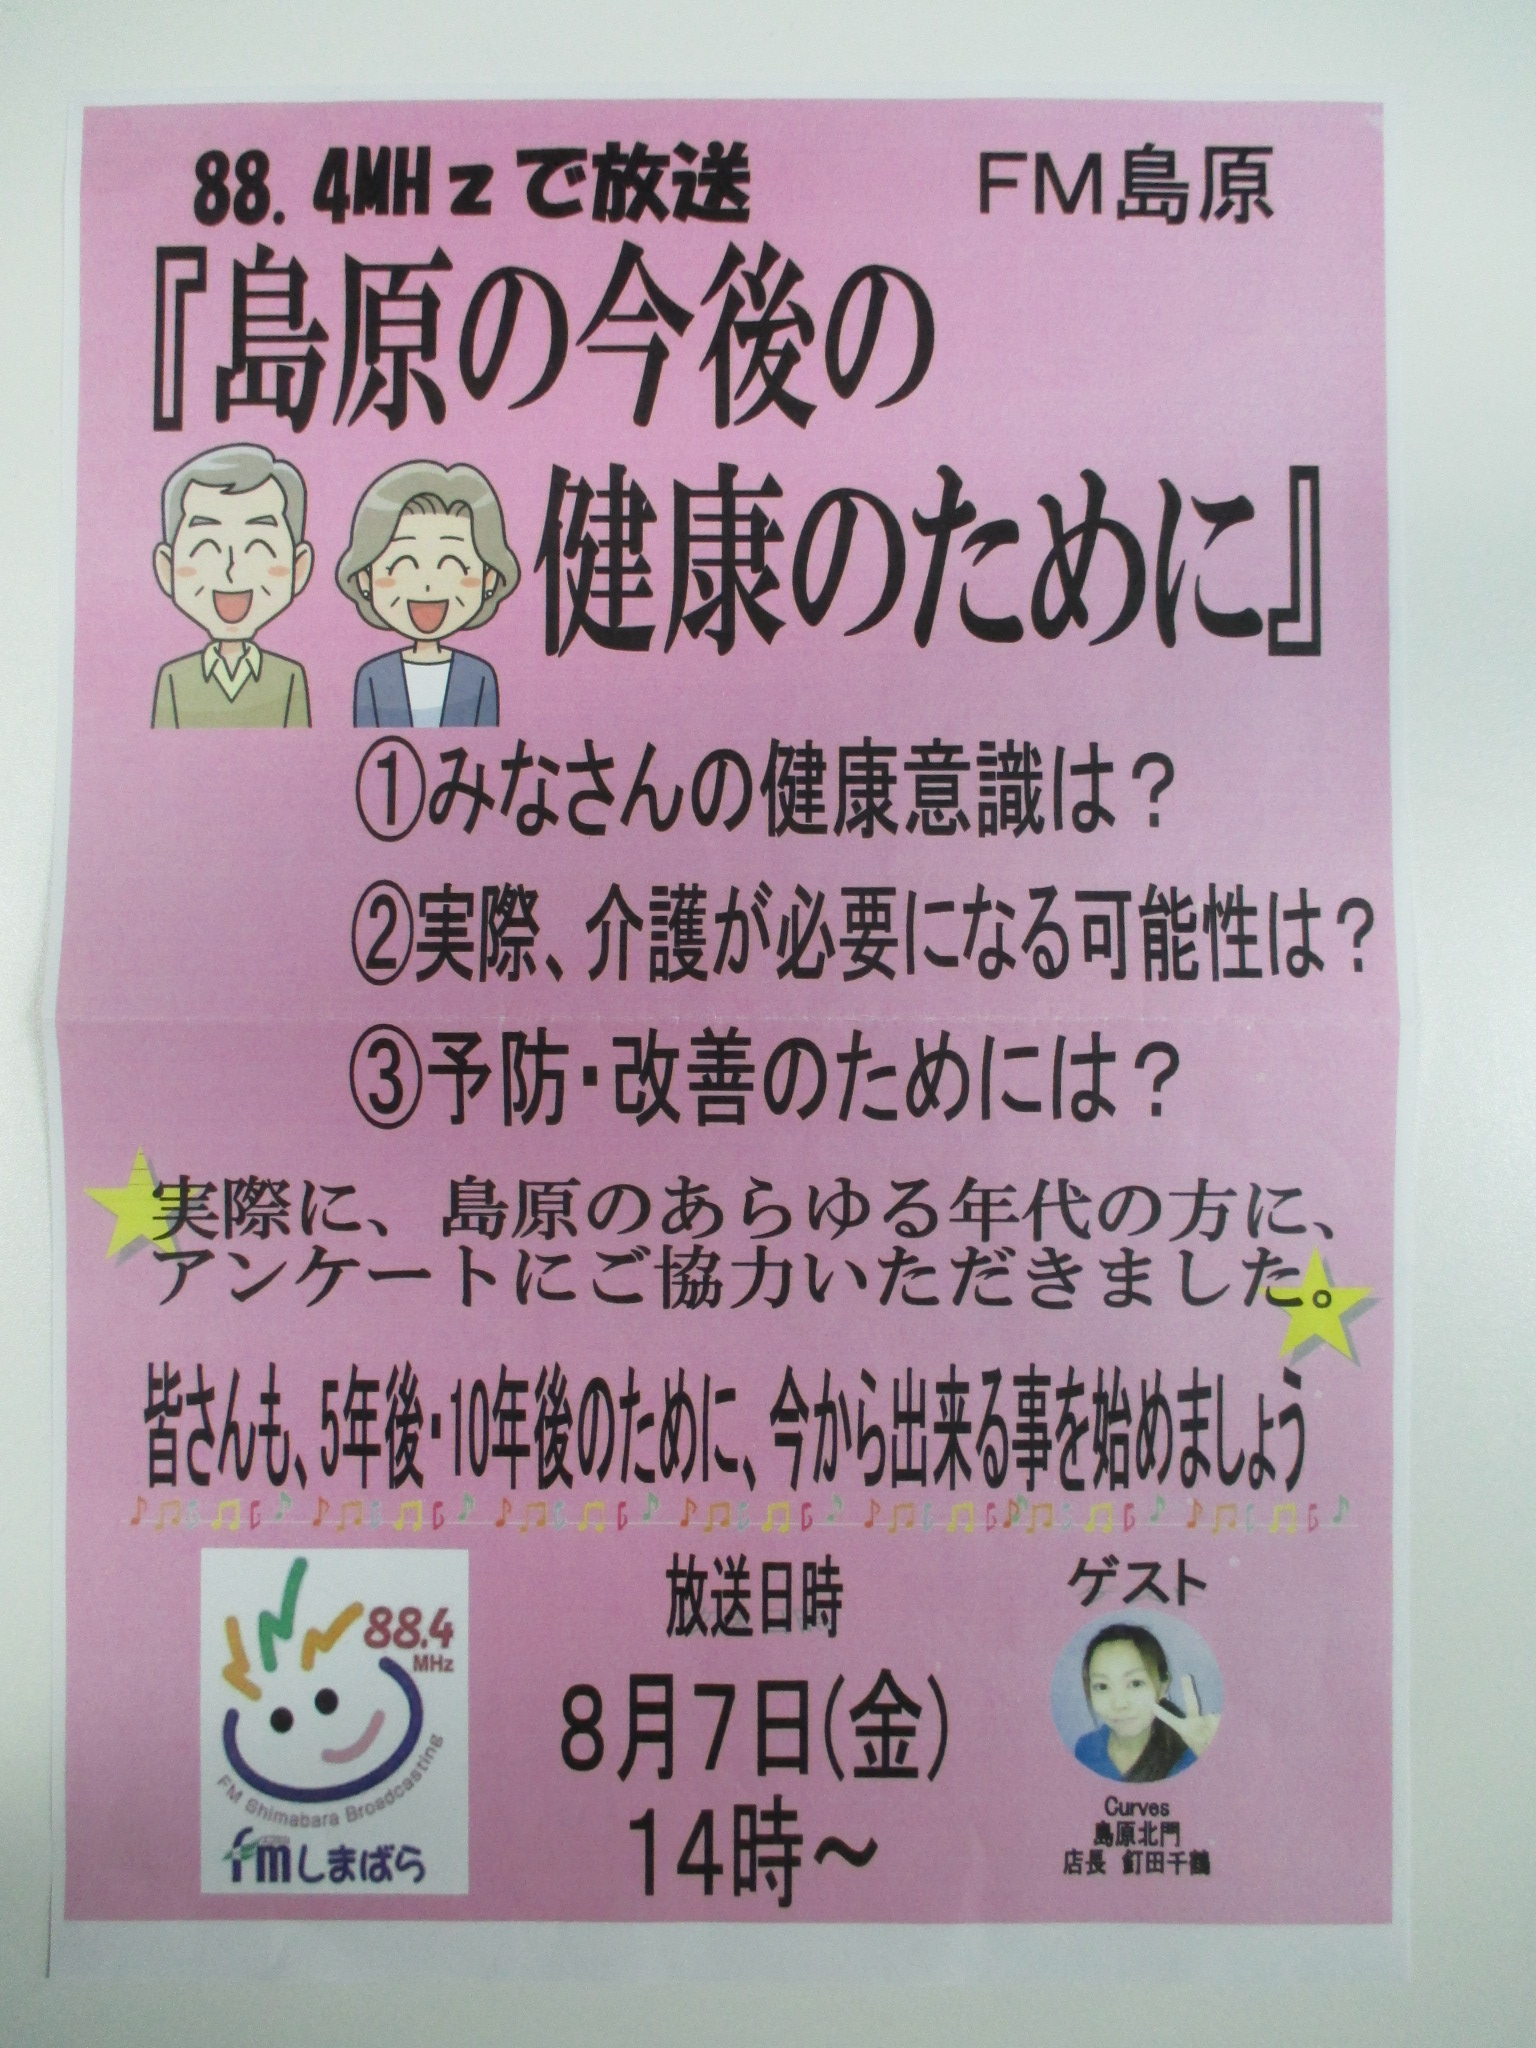 88.4MHzで放送 FM島原
『島原の今後の
健康のために』
①みなさんの健康意識は？
②実際、介護が必要になる可能性は？
③予防・改善のためには？
実際に、島原のあらゆる年代の方に、
アンケートにご協力いただきました。
皆さんも、5年後・10年後のために、今から出来る事を始めましょう
88.4
MHz
FM Shimabara Broadcasting
fmしまばら
放送日時
8月7日(金)
14時～
ゲスト
Curves
島原北門
店長 釘田千鶴